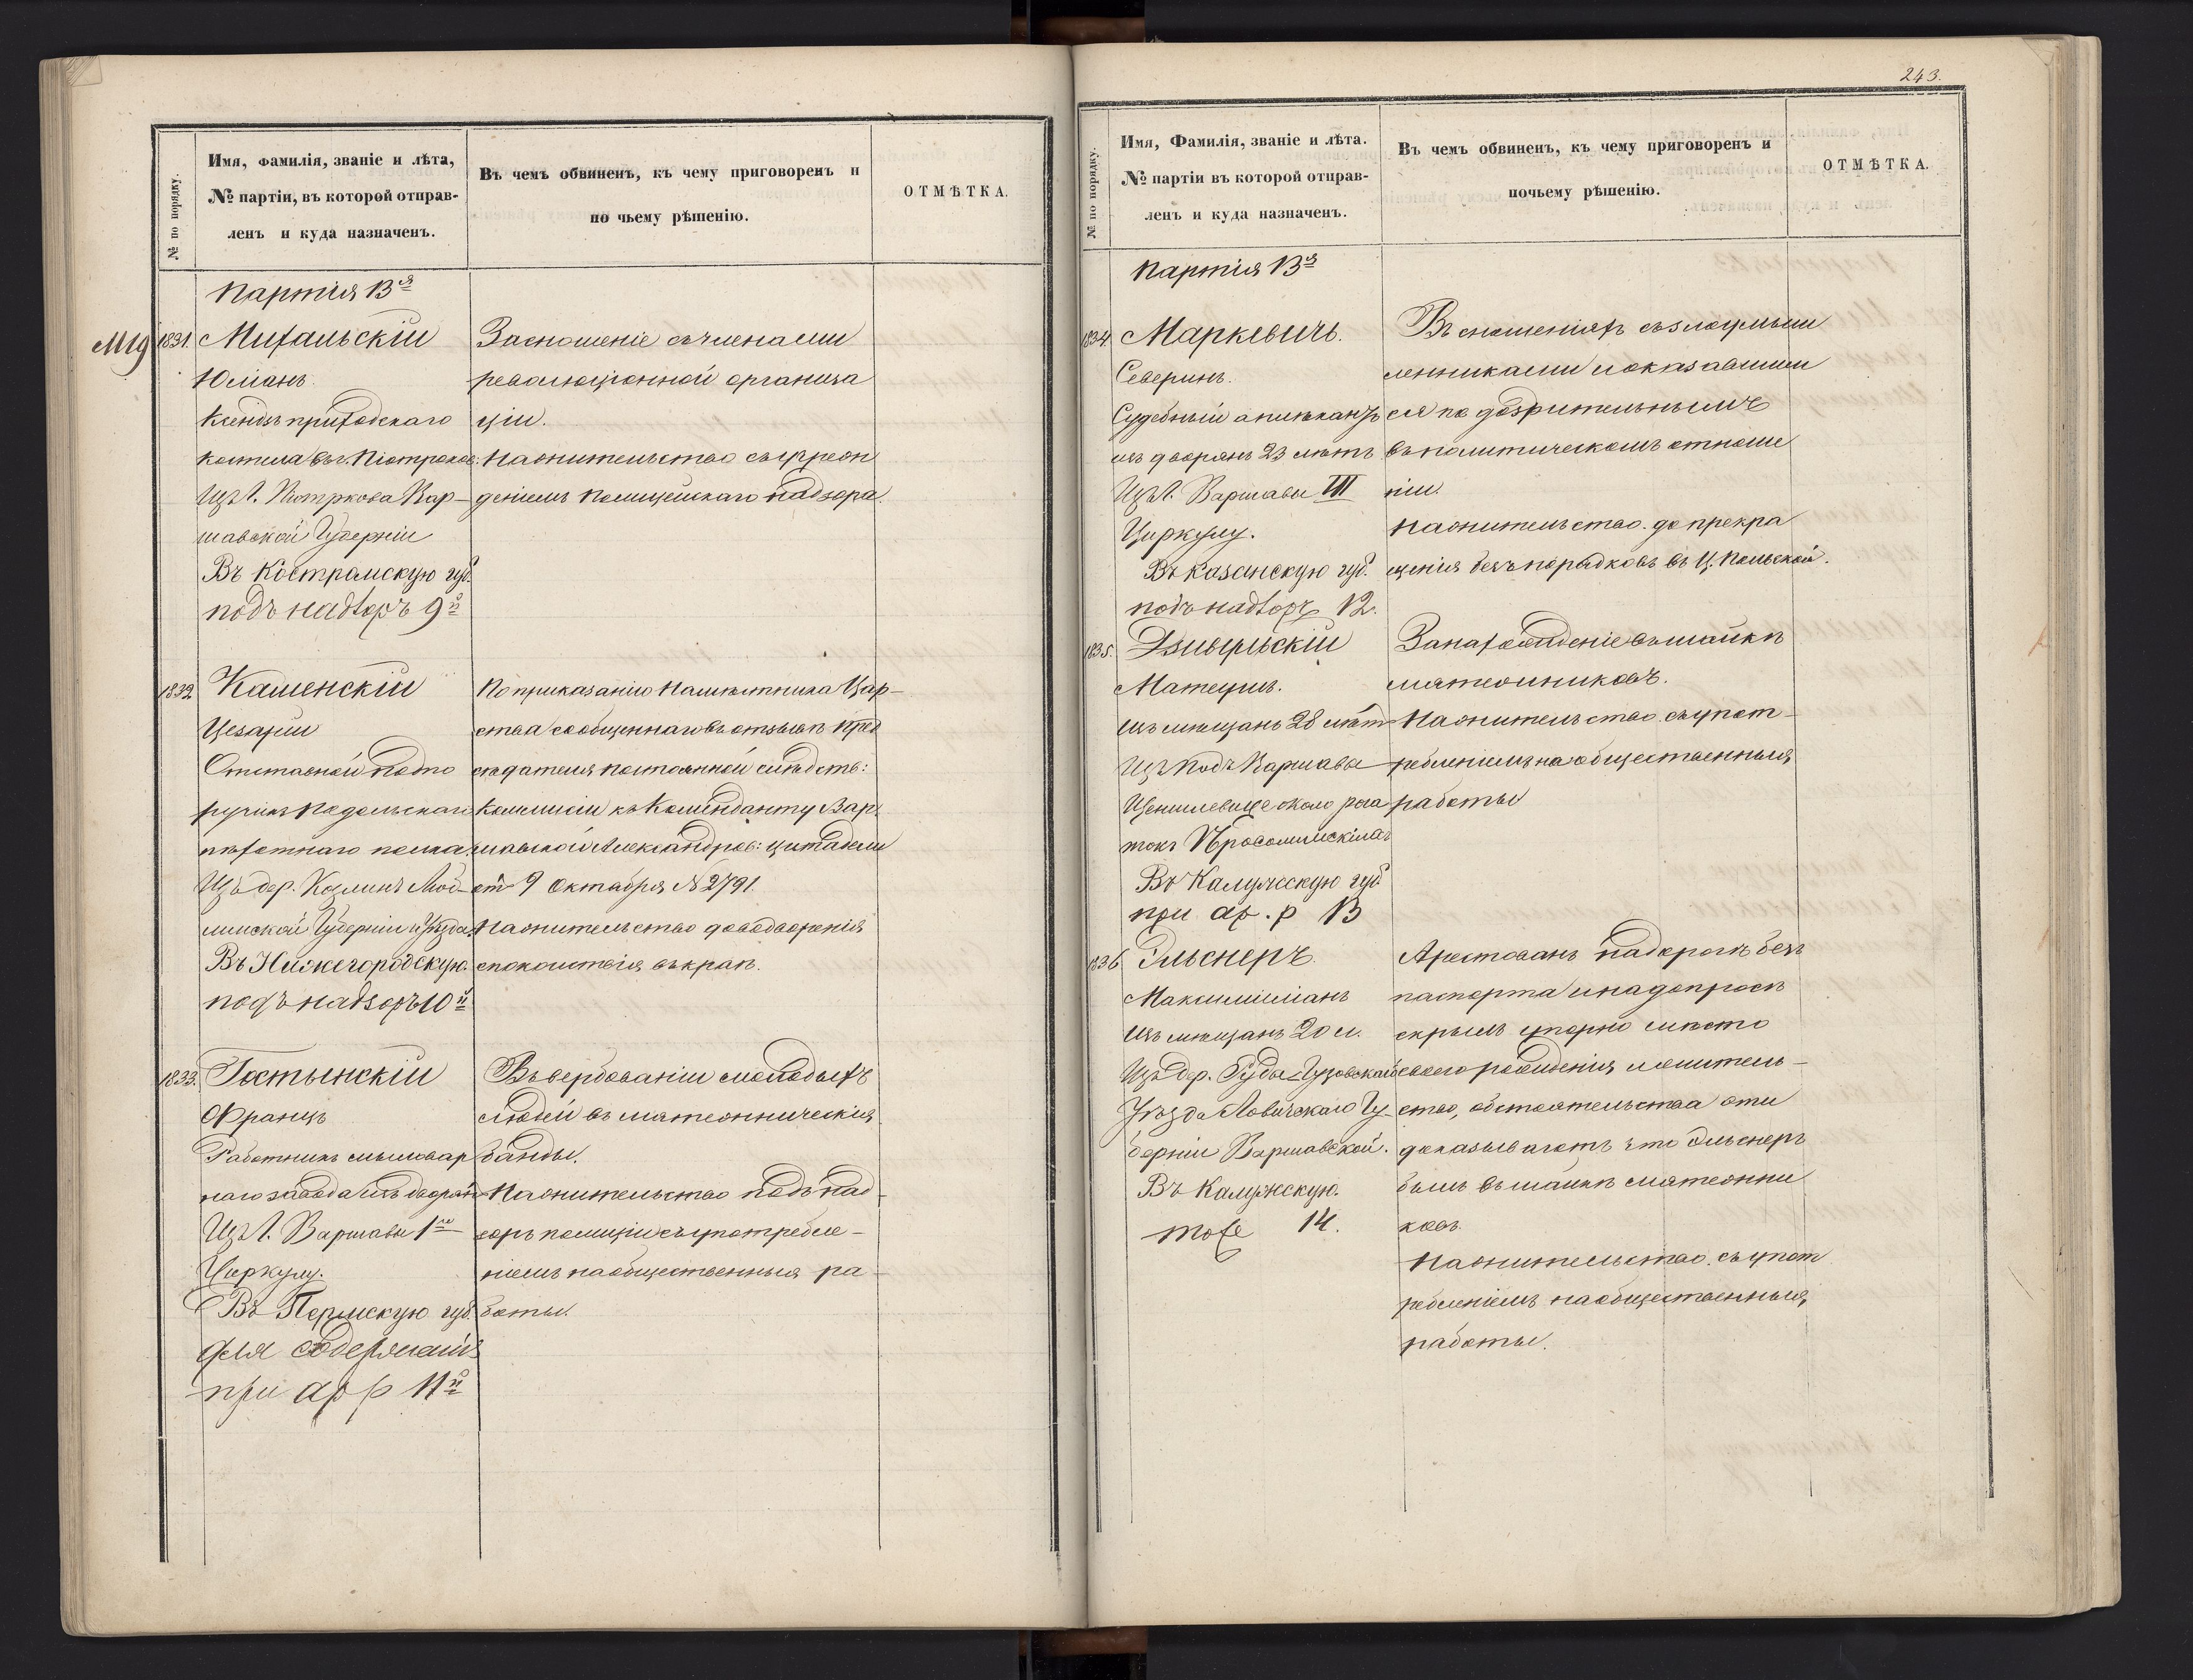 № по порядку.
Имя, фамилія, званіе и лѣта,
№ партіи, въ которой отправ-
ленъ и куда назначенъ.
Въ чемъ обвиненъ, къ чему приговоренъ и
по чьему рѣшенію.
ОТМѢТКА.
Партія 13я
1831.
Михальскій
Юліанъ
Ксендзъ приходскаго
костела въ г. Піотрковѣ
Изъ г. Піотркова Вар-
шавской Губерніи
Въ Костромскую губ.
подъ надзоръ 9й
За сношеніе съ членами
революціонной организа
ціи.
На жительство съ учреж
деніемъ полицейскаго надзора.
1832
Каменскій
Цезарій
Отставной подпо
ручикъ Подольскаго
пѣхотнаго полка
Изъ дер. Козминъ Люб-
линской Губерніи и уѣзда.
Въ Нижегородскую.
подъ надзоръ 10й
По приказанію Намѣстника Цар-
ства сообщеннаго въ отзывѣ пред
сѣдателя постоянной слѣдств:
коммисіи къ Коменданту Вар
шавской Александров: цитадели
отъ 9 Октября № 2791.
На жительство до водворенія
спокойствія въ краѣ.
1833.
Гостынскій
Францъ
Работникъ мыловар
наго завода изъ дворянъ
Изъ г. Варшавы 1го
Циркулу.
Въ Пермскую губ.
для содержанія
при ар р 11й
Въ вербованіи молодыхъ
людей въ мятежническія
банды.
На жительство подъ над-
зоръ полиціи съ употребле-
ніемъ на общественныя ра-
боты.
243.
№ по порядку.
Имя, Фамилія, званіе и лѣта.
№ партіи въ которой отправ-
ленъ и куда назначенъ.
Въ чемъ обвиненъ, къ чему приговоренъ и
почьему рѣшенію.
ОТМѢТКА.
Партія 13я
1834.
Маркевичъ.
Северинъ.
Судебный аппликантъ
изъ дворянъ 23 лѣтъ
Изъ г. Варшавы III
Циркулу.
Въ Казанскую губ.
подъ надзоръ 12.
Въ сношеніяхъ съ злоумыш
ленниками и оказавшим
ся по дозрительнымъ
въ политическомъ отноше
ніи.
На жительство. до прекра
щенія безъпорядковъ въ Ц. Польской.
1835.
Матеушъ.
изъ мѣщанъ 28 лѣтъ
Изъ подъ Варшавы
около рога
токъ
Въ Калужскую губ
при ар. р 13
За нахожденіе въ шайкѣ
мятежниковъ.
На жительство. съ упот-
ребленіемъ на общественныя
работы
1836
Эльснеръ.
Максимиліанъ
изъ мѣщанъ 20 л.
Изъ дер. Руды-Гузовской
Уѣзда Ловичскаго Гу-
берніи Варшавской.
Въ Калужскую.
тоже 14.
Арестованъ надорогѣ безъ
паспорта и на допросѣ
скрылъ упорно мѣсто
своего рожденія и житель-
ство, обстоятельства эти
доказываютъ что Эльснеръ
былъ въ шайкѣ мятежни
ковъ.
На жительство. съ упот
ребленіемъ на общественныя
работы.